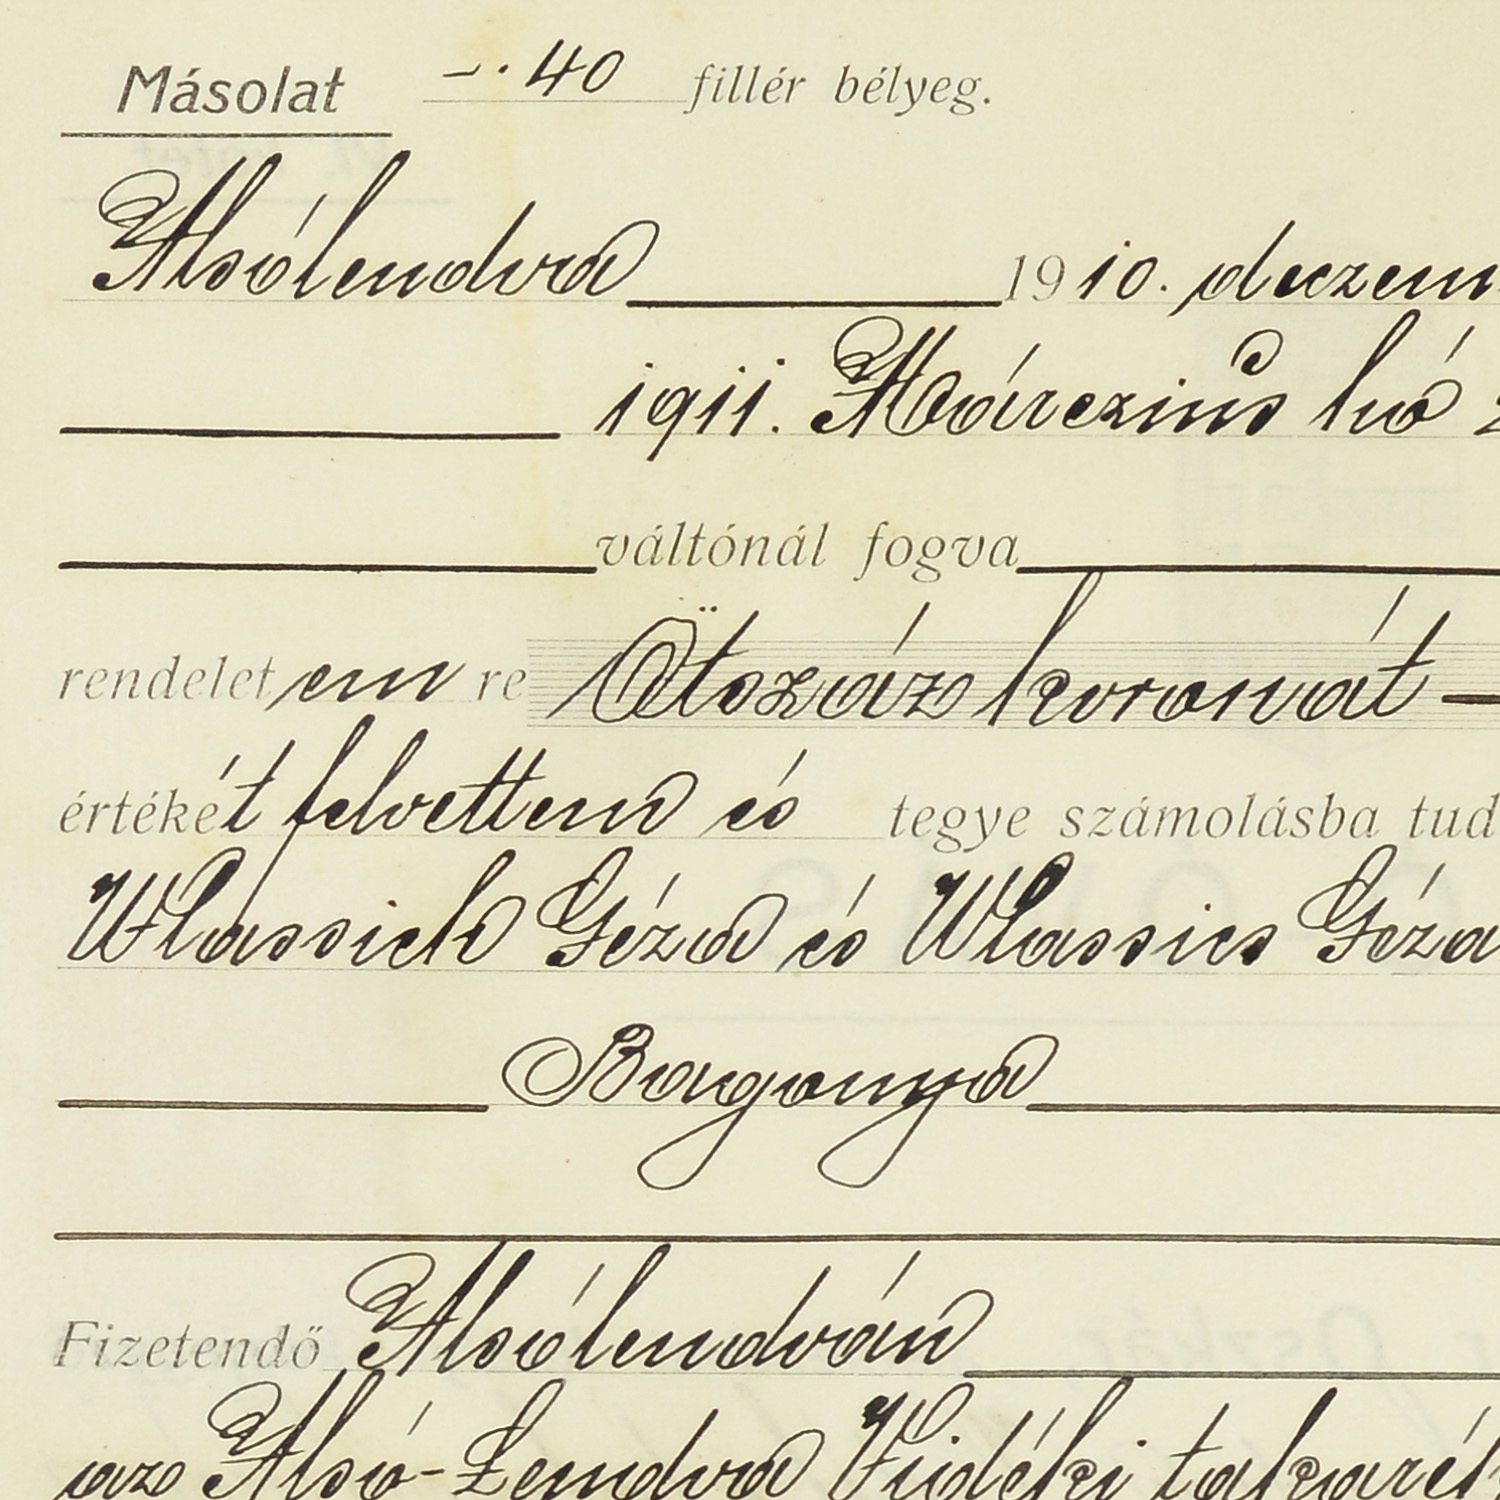 Másolat –.40 fillér bélyeg.
Alsólendva 1910. deczem
1911. Márczius hó
váltónál fogva
rendeletemre Ötszáz koronát –
értékét felvettem és tegye számolásba tud
Wlassich Géza és Wlassics Géza
Bagonya
Fizetendő Alsólendván
az Alsó-Lendva Vidéki takarék